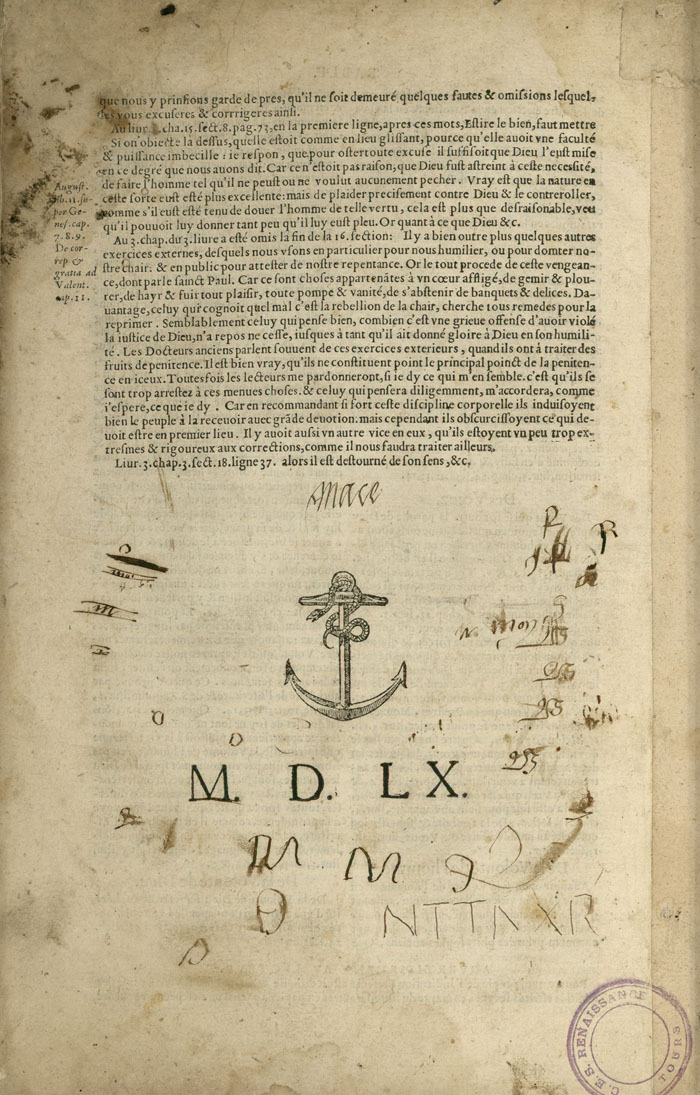 que nous y prinſions garde de pres, qu'il ne ſoit demeuré quelques fautes & omiſſions leſquel-
les vous excuſeres & corrrigeres ainſi.
Au liur. cha. 15. ſect. 8. pag. 73, en la premiere ligne, apres ces mots, Eſlire le bien, faut mettre
Si on obiecte la deſſus, quelle eſtoit comme en lieu gliſſant, pource qu'elle auoit vne faculté
& puiſſance imbecille: ie reſpon, que pour oſter toute excuſe il ſuffiſoit que Dieu l'euſt miſe
en ce degré que nous auons dit. Car ce n'eſtoit pas raiſon, que Dieu fuſt aſtreint à ceſte neceſſité,
de faire l'homme tel qu'il ne peuſt ou ne voulut aucunement pecher. Vray eſt que la nature en
ceſte ſorte euſt eſté plus excellente: mais de plaider preciſement contre Dieu & le controller,
comme s'il euſt eſté tenu de douer l'homme de telle vertu, cela eſt plus que deſraiſonable, veu
qu'il pouuoit luy donner tant peu qu'il luy euſt pleu. Or quant à ce que Dieu &c.
August.
lib. 11. su-
per Ge-
nes. cap.
7. 8. 9.
De cor-
rep &
gratia ad
Valent.
cap. 11.
Au 3. chap. du 3. liure a eſté omis la fin de la 16. ſection: Il y a bien outre plus quelques autres
exercices externes, deſquels nous vſons en particulier pour nous humilier, ou pour domter no-
ſtre chair: & en public pour atteſter de noſtre repentance. Or le tout procede de ceſte vengean-
ce, dont parle ſainct Paul. Car ce ſont choſes appartenātes à vn cœur affligé, de gemir & plou-
rer, de hayr & fuir tout plaiſir, toute pompe & vanité, de s'abſtenir de banquets & delices. Da-
uantage, celuy qui cognoit quel mal c'eſt la rebellion de la chair, cherche tous remedes pour la
reprimer. Semblablement celuy qui penſe bien, combien c'eſt vne grieue offenſe d'auoir violé
la iuſtice de Dieu, n'a repos ne ceſſe, iuſques à tant qu'il ait donné gloire à Dieu en ſon humili-
té. Les Docteurs anciens parlent ſouuent de ces exercices exterieurs, quand ils ont à traiter des
fruits de penitence. Il eſt bien vray, qu'ils ne conſtituent point le principal poinct de la peniten-
ce en iceux. Toutesfois les lecteurs me pardonneront, ſi ie dy ce qui m'en ſemble. c'eſt qu'ils ſe
ſont trop arreſtez à ces menues choſes. & celuy qui penſera diligemment, m'accordera, comme
i'eſpere, ce que ie dy. Car en recommandant ſi fort ceſte diſcipline corporelle ils induiſoyent
bien le peuple à la receuoir auec grāde deuotion. mais cependant ils obſcurciſſoyent ce qui de-
uoit eſtre en premier lieu. Il y auoit auſſi vn autre vice en eux, qu'ils eſtoyent vn peu trop ex-
treſmes & rigoureux aux corrections, comme il nous faudra traiter ailleurs.
Liur. 3. chap. 3. ſect. 18. ligne 37. alors il eſt deſtourné de ſon ſens, &c.
M. D. LX.
C.E.S. RENAISSANCE
TOURS